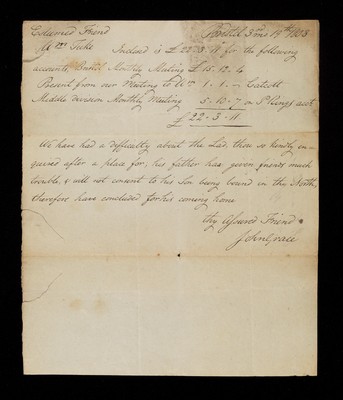 Esteemed Friend Bristol 3rd mo 19th 1803
Wm Tuke Inclosed is £22.3.11 for the following
accounts, Bristol Monthly Meeting £15.12.4
Present from our Meeting to Wm 1.1.–
Middle Division Monthly Meeting 5.10.7 on acct
£22.3.11
We have had a difficulty about the Lad, thou so kindly en-
quired after a place for, his father has given friends much
trouble, & will not consent to his Son being bound in the North,
therefore have concluded for his coming home
thy assured Friend
John Grace